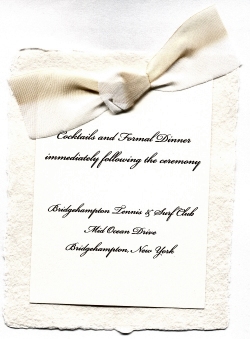 Cocktails and Formal Dinner
immediately following the ceremony
Bridgehampton Tennis & Surf Club
Mid Ocean Drive
Bridgehampton, New York